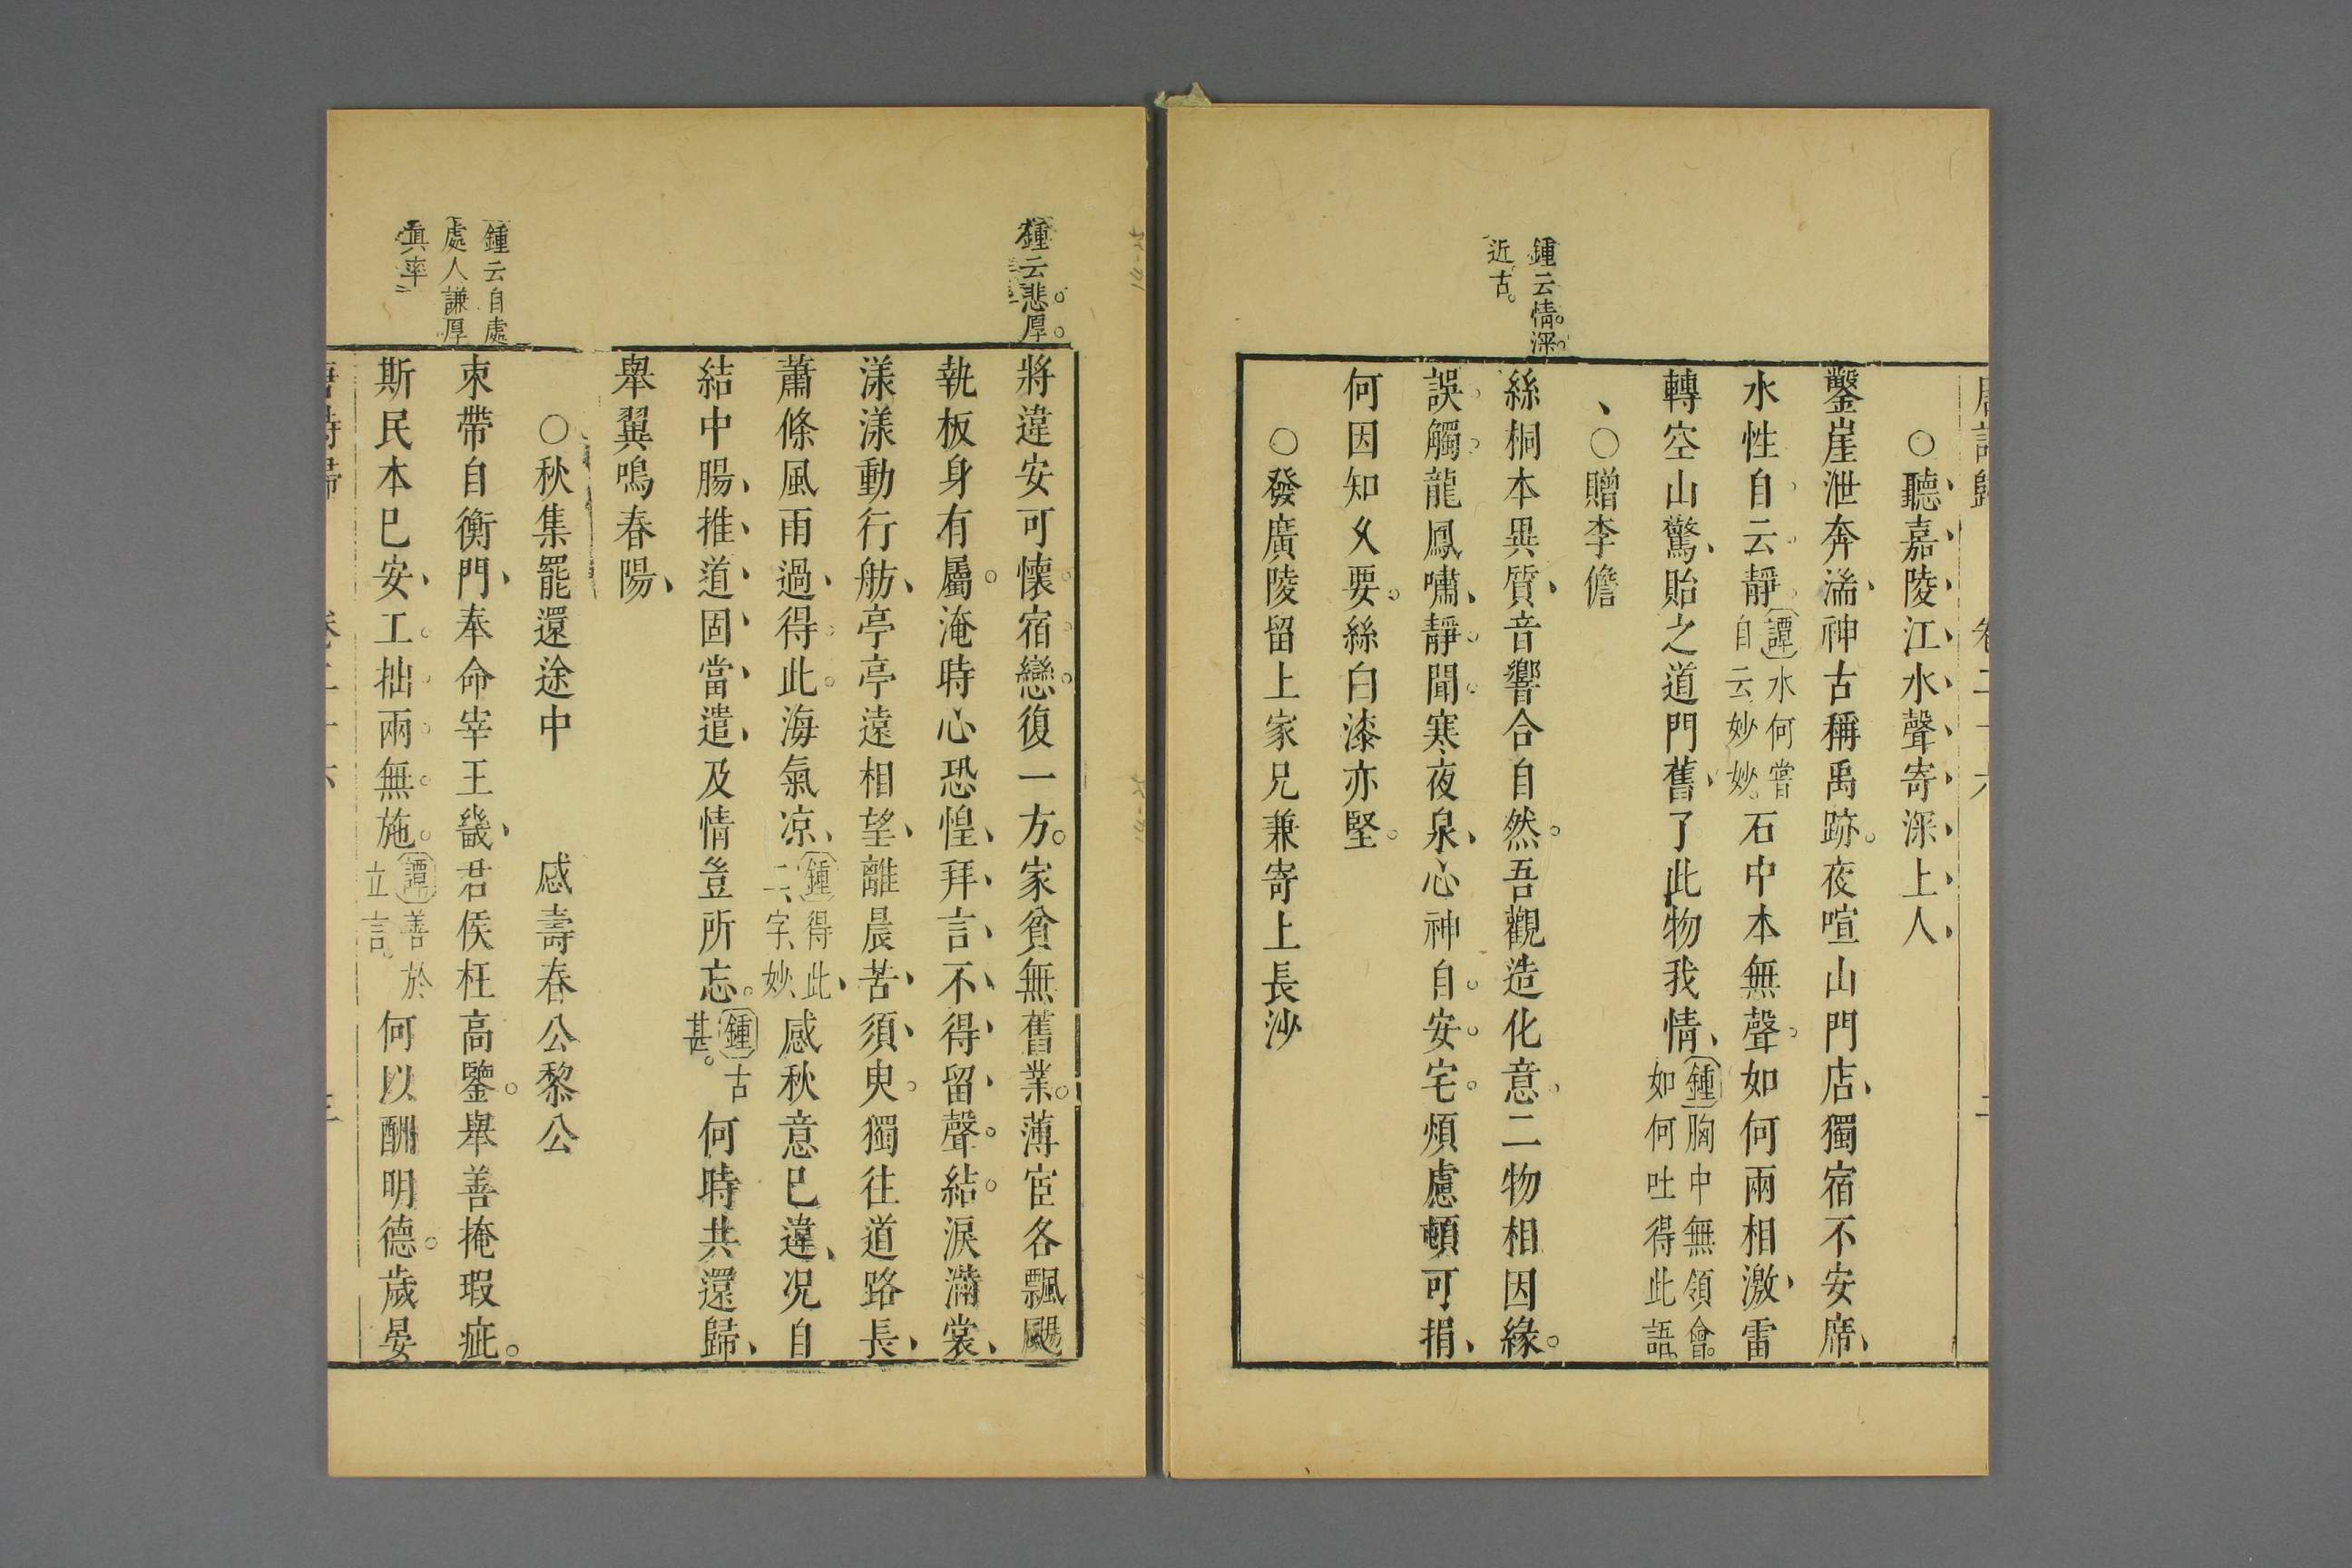 唐詩歸 卷二十六 二
○聽嘉陵江水聲寄深上人
鑿崖泄奔湍神古稱禹跡夜喧山門店獨宿不安席
水性自云靜譚水何嘗自云妙妙石中本無聲如何兩相激雷
轉空山驚貽之道門舊了此物我情鍾胸中無領會如何吐得此語
○贈李儋
鍾云情深
近古
絲桐本異質音響合自然吾觀造化意二物相因緣
誤觸龍鳳嘯靜聞寒夜泉心神自安宅煩慮頓可捐
何因知久要絲白漆亦堅
○發廣陵留上家兄兼寄上長沙
鍾云悲厚
將違安可懷宿戀復一方家貧無舊業薄宦各飄颺
執板身有屬淹時心恐惶拜言不得留聲結淚滿裳
漾漾動行舫亭亭遠相望離晨苦須臾獨往道路長
蕭條風雨過得此海氣凉鍾得此二字妙感秋意已違况自
結中腸推道固當遣及情豈所忘鍾古甚何時共還歸
舉翼鳴春陽
○秋集罷還途中 感壽春公黎公
鍾云自處
處人謙厚
真率
束帶自衡門奉命宰王畿君侯枉高鑒舉善掩瑕疵
斯民本已安工拙兩無施譚善於立言何以酬明德歲晏
唐詩歸 卷二十六 三